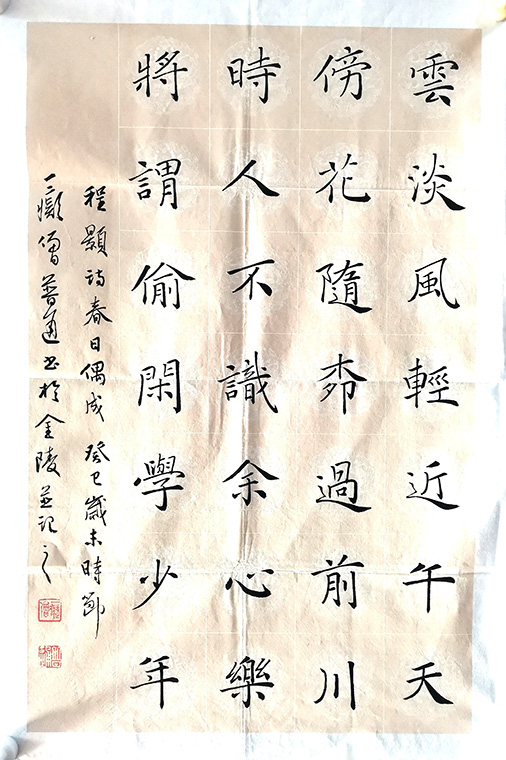 雲淡風輕近午天
傍花隨柳過前川
時人不識余心樂
將謂偷閑學少年
程顥詩春日偶成 癸巳歲末時節
僧普通書於金陵並記之